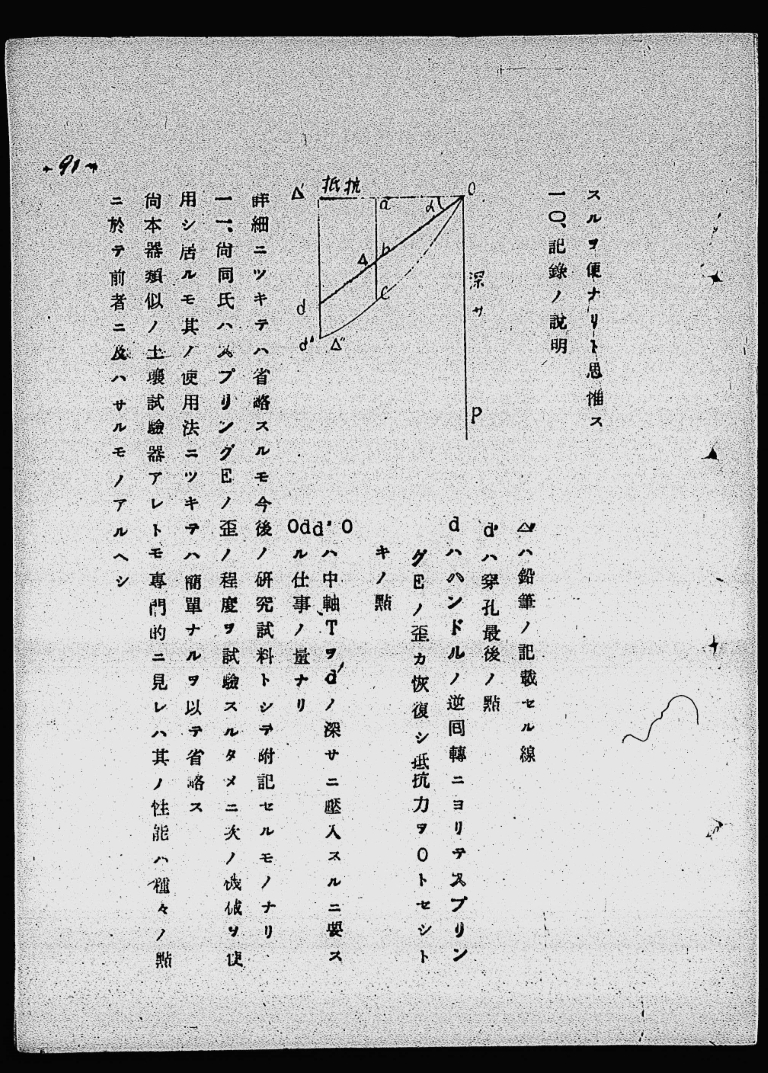 -91-
スルヲ便ナリト思惟ス
一〇、記錄ノ說明
抵抗
O
α
a
b
c
d
d'
Δ
Δ'
Δ''
深サ
P
Δ''ハ鉛筆ノ記載セル線
d'ハ穿孔最後ノ點
dハハンドルノ逆回轉ニヨリテスプリン
グEノ歪カ恢復シ抵抗力ヲOトセシト
キノ點
Odd'Oハ中軸Tヲd'ノ深サニ壓入スルニ要ス
ル仕事ノ量ナリ
詳細ニツキテハ省略スルモ今後ノ研究試料トシテ附記セルモノナリ
一一、尙同氏ハスプリングEノ歪ノ程度ヲ試驗スルタメニ次ノ機械ヲ使
用シ居ルモ其ノ使用法ニツキテハ簡單ナルヲ以テ省略ス
尙本器類似ノ土壤試驗器アレトモ專門的ニ見レハ其ノ性能ハ種々ノ點
ニ於テ前者ニ及ハサルモノアルヘシ